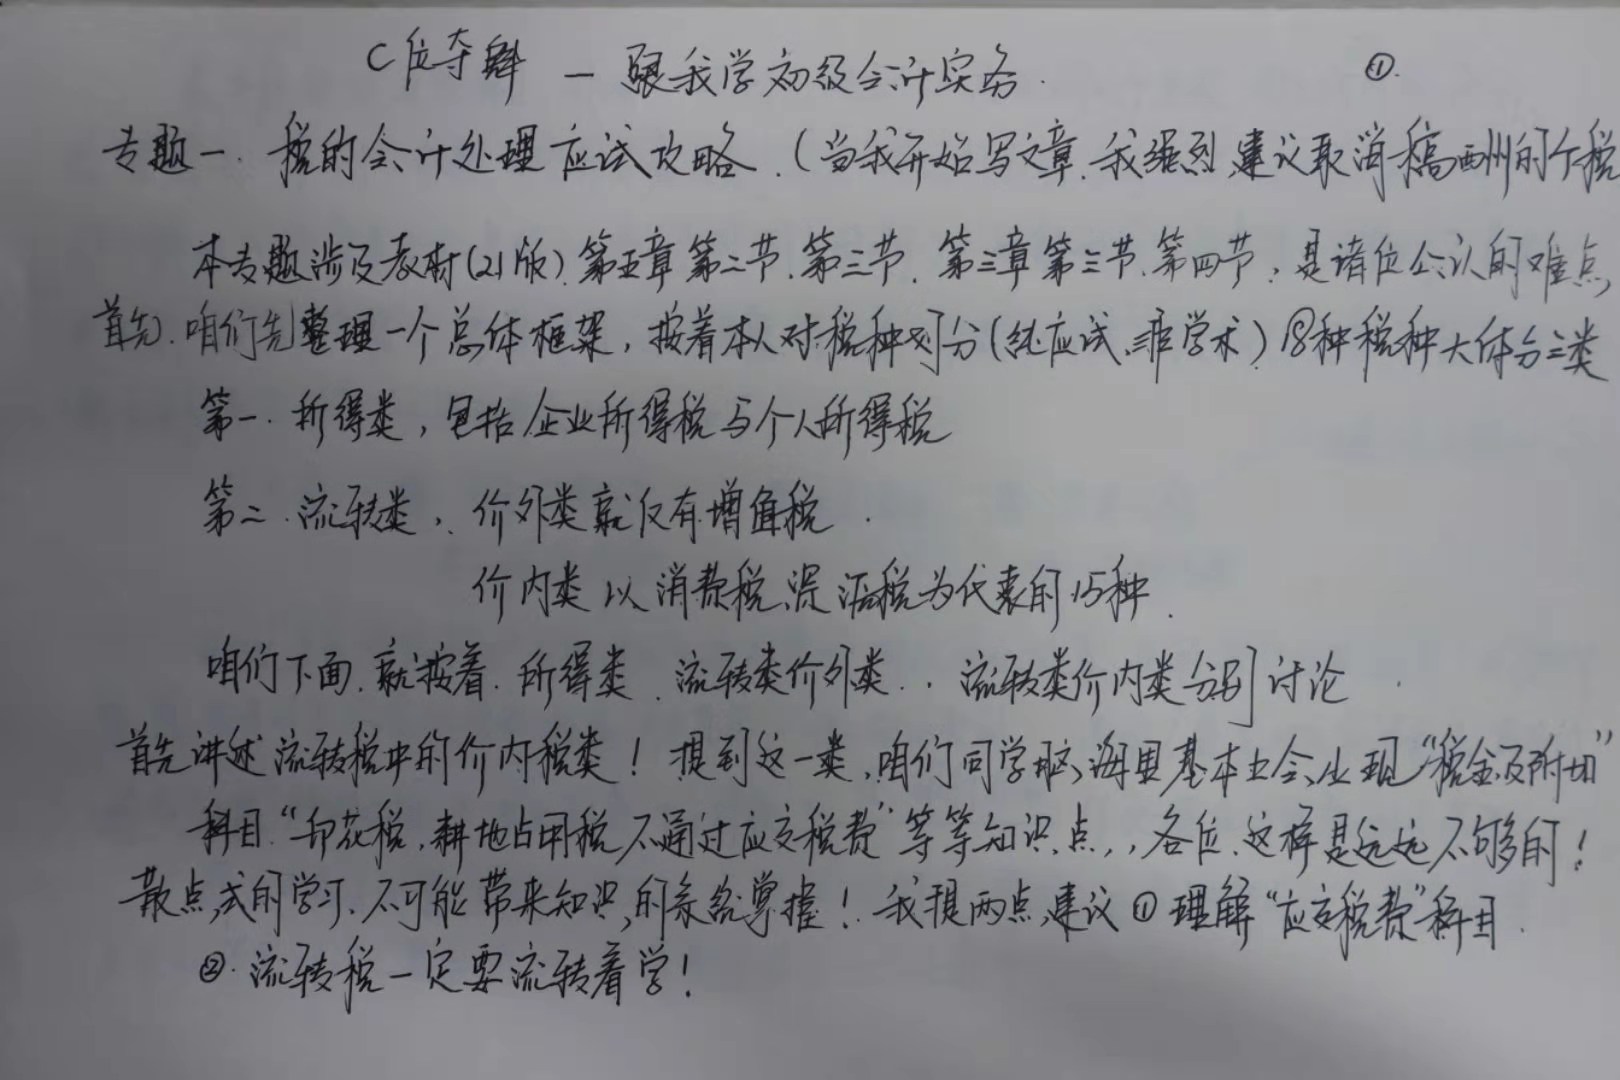 C位夺魁 — 跟我学初级会计实务. ①.
专题一. 税的会计处理应试攻略. (当我开始写文章. 我强烈建议取消稿酬的个税
本专题涉及教材(21版). 第五章第二节. 第三节. 第三章第三节. 第四节, 是诸位公认的难点,
首先. 咱们先整理一个总体框架, 按着本人对税种划分(纯应试、非学术) 18种税种大体分三类
第一. 所得类, 包括企业所得税与个人所得税
第二. 流转类, 价外类就仅有增值税.
价内类以消费税、资源税为代表的15种.
咱们下面. 就按着. 所得类. 流转类价外类.. 流转类价内类分别讨论.
首先讲述流转税中的价内税类! 提到这一类, 咱们同学脑海里基本上会出现“税金及附加”
科目“印花税, 耕地占用税不通过应交税费”等等知识点,, 各位. 这样是远远不够的!
散点式的学习. 不可能带来知识的系统掌握! 我提两点建议①理解“应交税费”科目.
②. 流转税一定要流转着学!